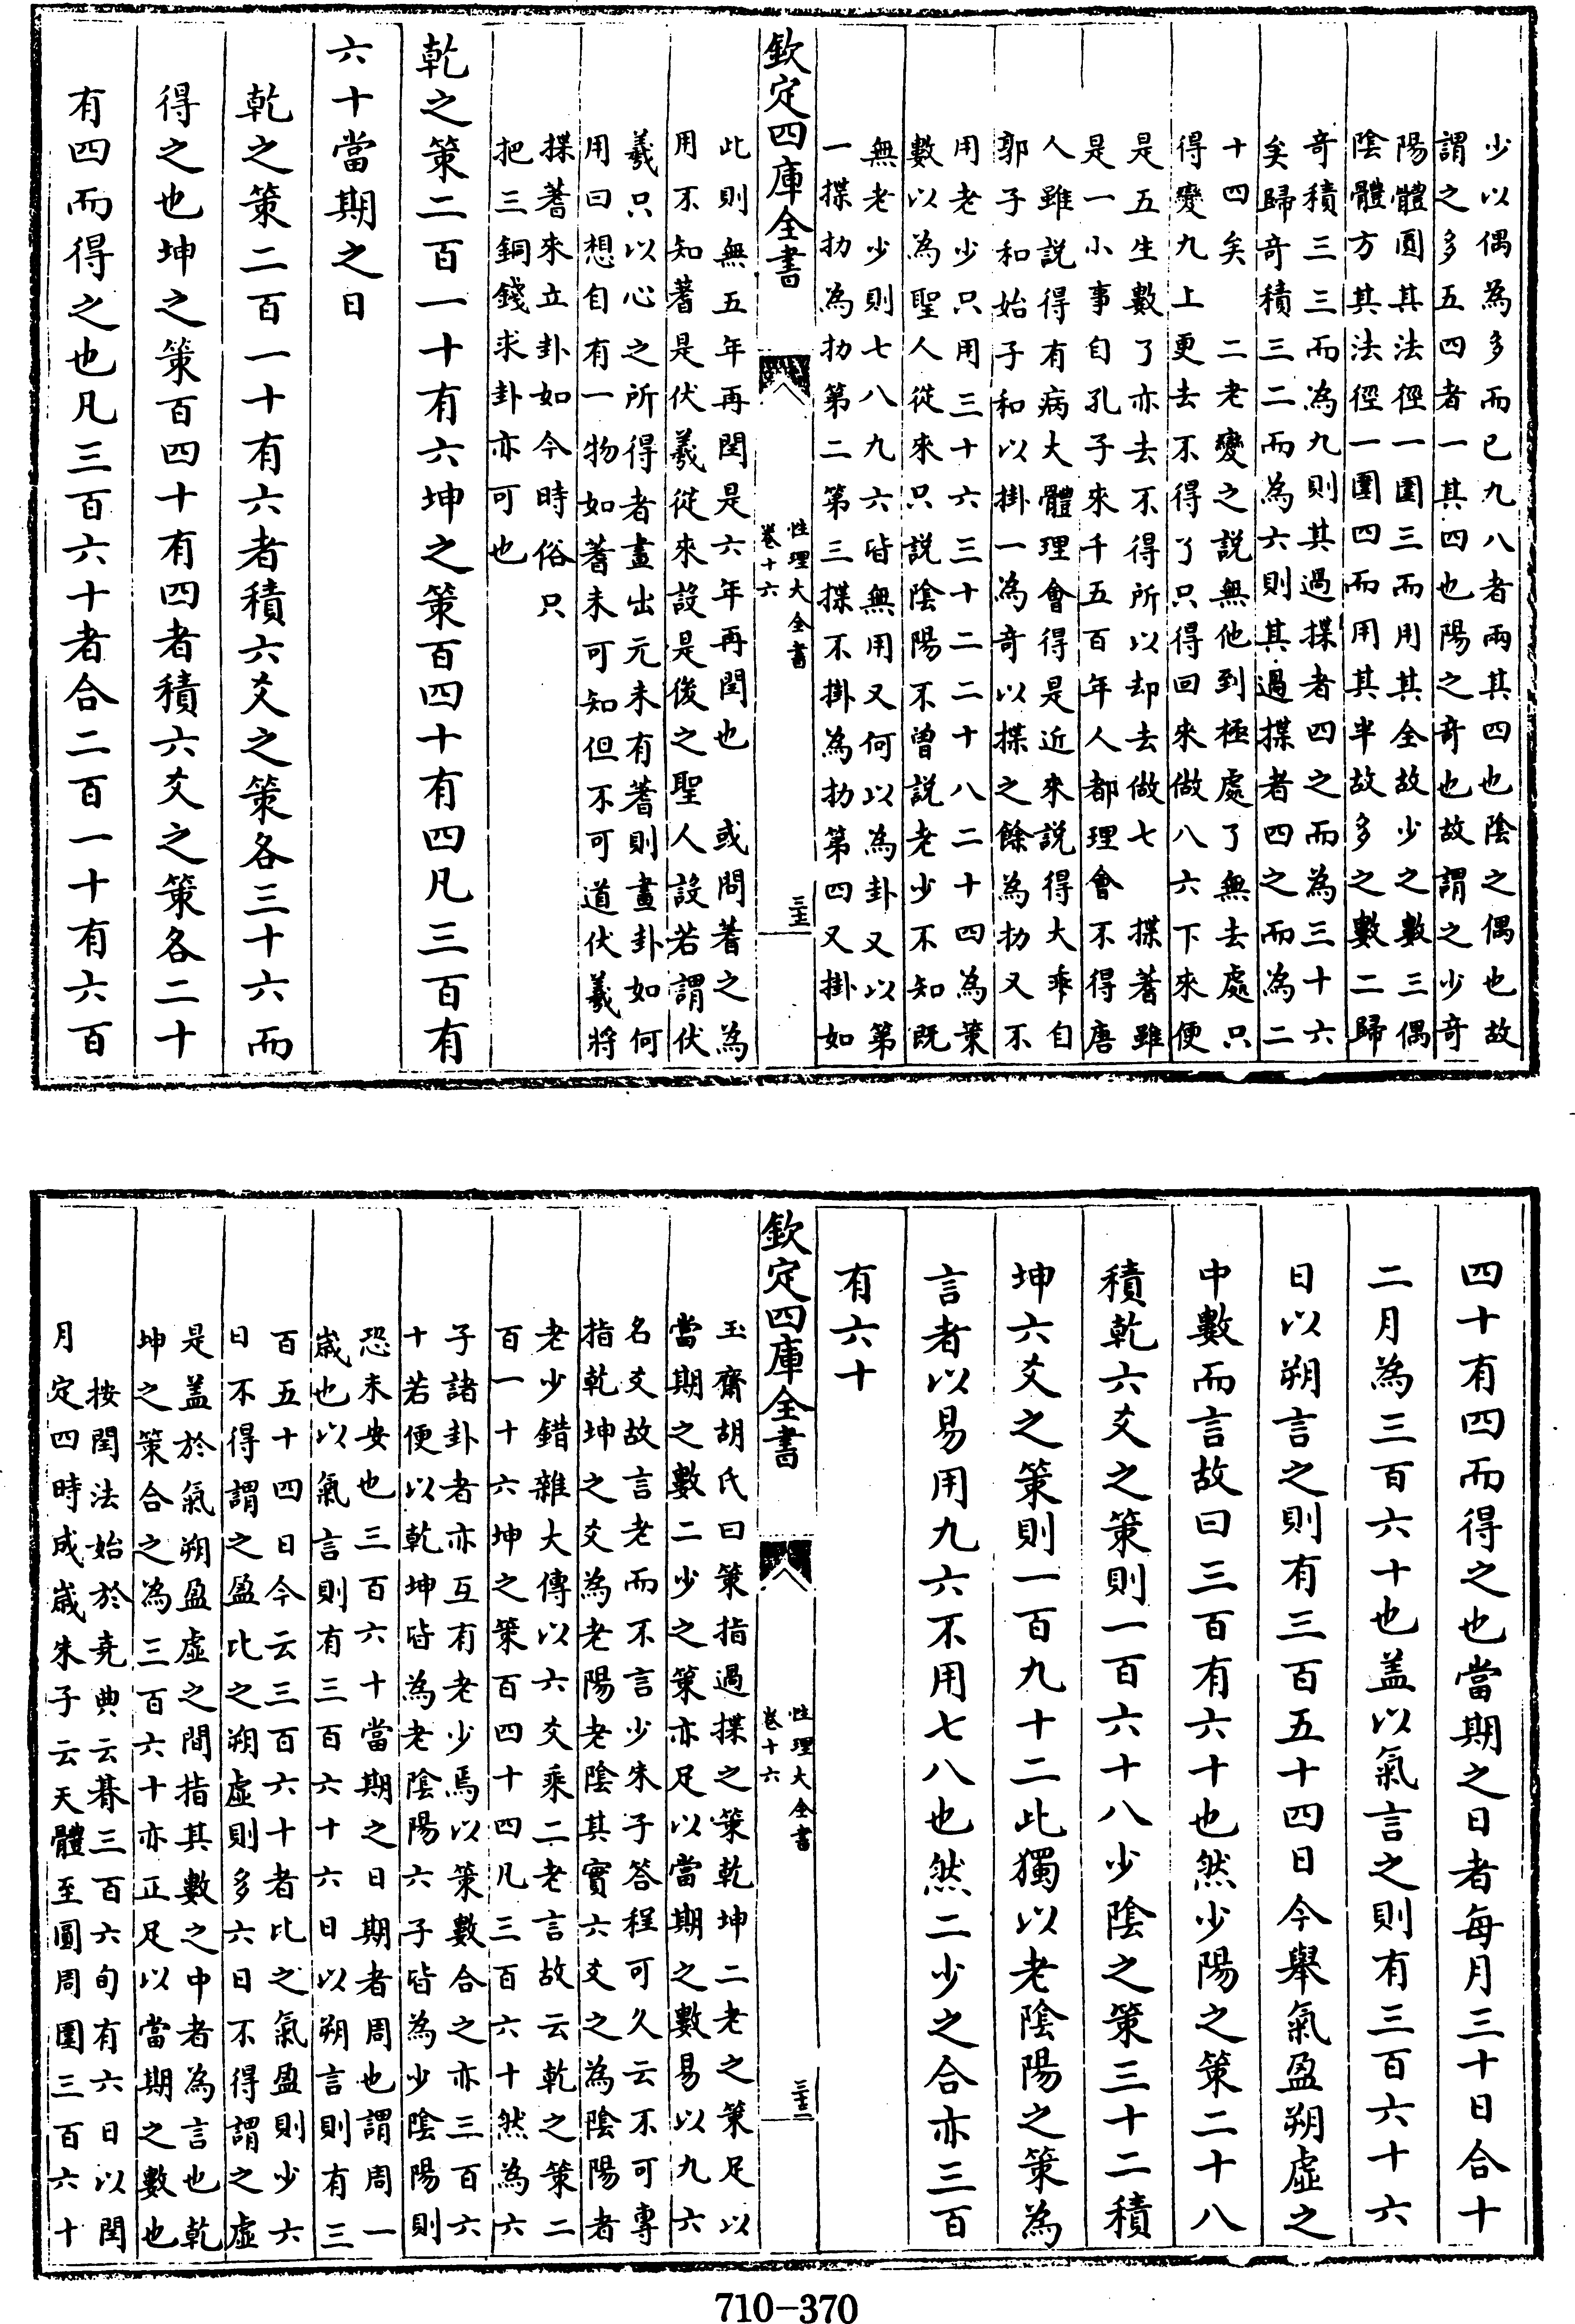 少以偶為多而已九八者兩其四也陰之偶也故
謂之多五四者一其四也陽之奇也故謂之少奇
陽體圓其法徑一圍三而用其全故少之數三偶
陰體方其法徑一圍四而用其半故多之數二歸
奇積三三而為九則其過揲者四之而為三十六
矣歸奇積三二而為六則其過揲者四之而為二
十四矣　二老變之說無他到極處了無去處只
得變九上更去不得了只得回來做八六下來便
是五生數了亦去不得所以却去做七　揲蓍雖
是一小事自孔子來千五百年人都理會不得唐
人雖說得有病大體理會得是近來說得大乖自
郭子和始子和以掛一為奇以揲之餘為扐又不
用老少只用三十六三十二二十八二十四為策
數以為聖人從來只說陰陽不曾說老少不知既
無老少則七八九六皆無用又何以為卦又以第
一揲扐為扐第二第三揲不掛為扐第四又掛如
欽定四庫全書
性理大全書
卷十六
三十五
此則無五年再閏是六年再閏也　或問蓍之為
用不知蓍是伏羲從來設是後之聖人設若謂伏
羲只以心之所得者畫出元未有蓍則畫卦如何
用曰想自有一物如蓍未可知但不可道伏羲將
揲蓍來立卦如今時俗只
把三銅錢求卦亦可也
乾之策二百一十有六坤之策百四十有四凡三百有
六十當期之日
乾之策二百一十有六者積六爻之策各三十六而
得之也坤之策百四十有四者積六爻之策各二十
有四而得之也凡三百六十者合二百一十有六百
四十有四而得之也當期之日者每月三十日合十
二月為三百六十也盖以氣言之則有三百六十六
日以朔言之則有三百五十四日今舉氣盈朔虛之
中數而言故曰三百有六十也然少陽之策二十八
積乾六爻之策則一百六十八少陰之策三十二積
坤六爻之策則一百九十二此獨以老陰陽之策為
言者以易用九六不用七八也然二少之合亦三百
有六十
欽定四庫全書
性理大全書
卷十六
三十六
玉齋胡氏曰策指過揲之策乾坤二老之策足以
當期之數二少之策亦足以當期之數易以九六
名爻故言老而不言少朱子答程可久云不可專
指乾坤之爻為老陽老陰其實六爻之為陰陽者
老少錯雜大傳以六爻乘二老言故云乾之策二
百一十六坤之策百四十四凡三百六十然為六
子諸卦者亦互有老少焉以策數合之亦三百六
十若便以乾坤皆為老陰陽六子皆為少陰陽則
恐未安也三百六十當期之日期者周也謂周一
嵗也以氣言則有三百六十六日以朔言則有三
百五十四日今云三百六十者比之氣盈則少六
日不得謂之盈比之朔虛則多六日不得謂之虛
是盖於氣朔盈虛之間指其數之中者為言也乾
坤之策合之為三百六十亦正足以當期之數也
按閏法始於堯典云朞三百六旬有六日以閏
月定四時成嵗朱子云天體至圓周圍三百六十
710-370